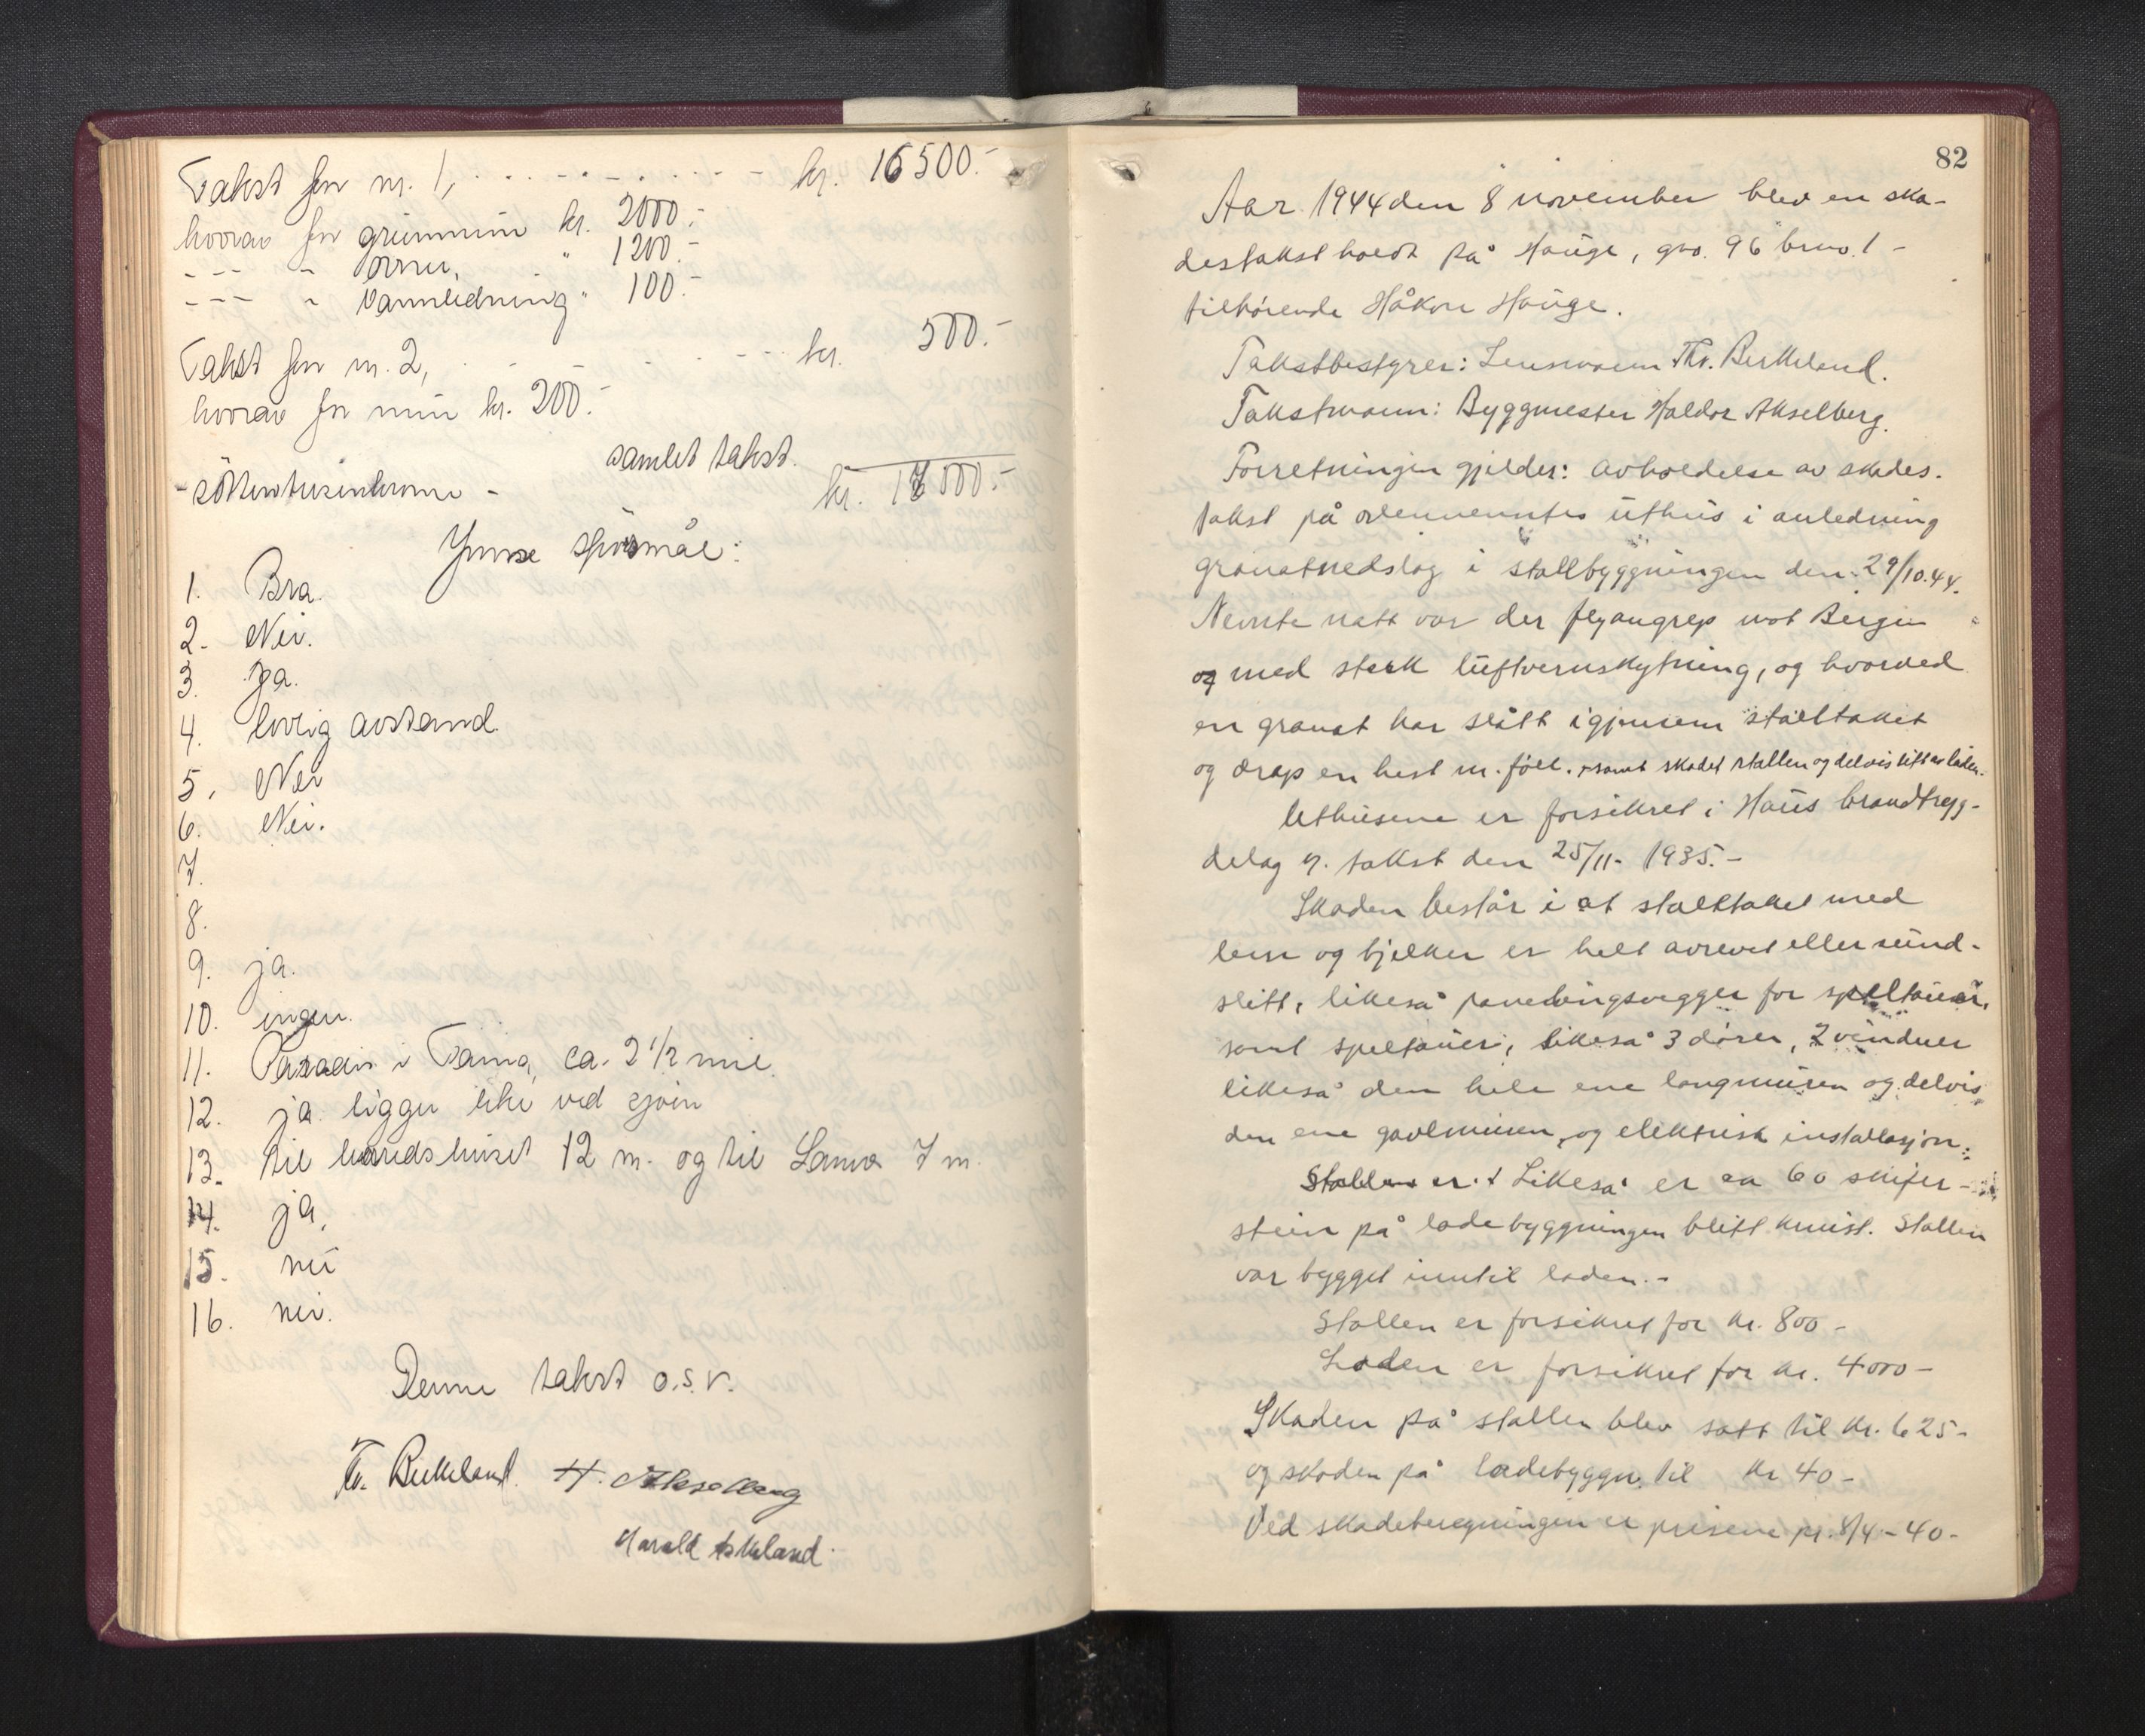 Takst for nr. 1, . . . . . . . . . . kr. 16500.-
hvorav for grunnmur kr. 2000.-
- - - " ovner, " 1200.-
- - - " vannledning " 100.-
Takst for nr. 2, . . . . kr. 500.-
hvorav for mur kr. 200.-
samlet takst.
- søttentusenkroner - kr. 17000.-
Ymse spörsmål:
1. Bra.
2. Nei.
3. Ja.
4. lovlig avstand.
5. Nei
6. Nei.
7.
8.
9. ja.
10. ingen.
11. i ca. 2 1/2 mil.
12. ja. ligger like ved sjøen
13. til våndshuset 12 m. og til 7 m.
14. ja,
15. nei
16. nei.
Denne takst o.s.v.
Tv. Birkeland. H. Akselberg
Harald Askeland
82
Aar 1944 den 8 november blev en ska-
destakst holdt på Hauge, gno. 96 bruno. 1 -
tilhørende Håkon Hauge.
Takstbestyrer: Lensmann Thv. Birkeland.
Takstmann: Byggmester Haldor Akselberg.
Forretningen gjelder: avholdelse av skades.
takst på ovennevntes uthus i anledning
granatnedslag i stallbyggningen den 29/10.44.
Nevnte natt var der flyangrep mot Bergen
og med sterk luftvernskytning, og hvorved
en granat har slått igjennem stalltaket
og drap en hest m. føll. samt skadet stallen og delvis litt av låden.
Uthusene er forsikret i Haus brandtryg-
delag if. takst den 25/11- 1935.-
Skaden består i at stalltaket med
lem og bjelker er helt avrevet eller sund-
slitt, likeså panelingsvegger for speltauer,
samt speltauer, likeså 3 dører, 2 vinduer
likeså den hele ene langmuren og delvis
den ene gavlmuren, og elektrisk installasjon.
Stallen er Likeså er ca 60 skifer-
stein på ladebyggningen blitt knust. Stallen
var bygget inntil laden.-
Stallen er forsikret for kr. 800 -
Laden er forsikret for kr. 4000 -
Skaden på stallen blev satt til kr. 625-
og skaden på ladebyggn. til kr 40 -
Ved skadeberegningen er prisene pr. 8/4 - 40 -